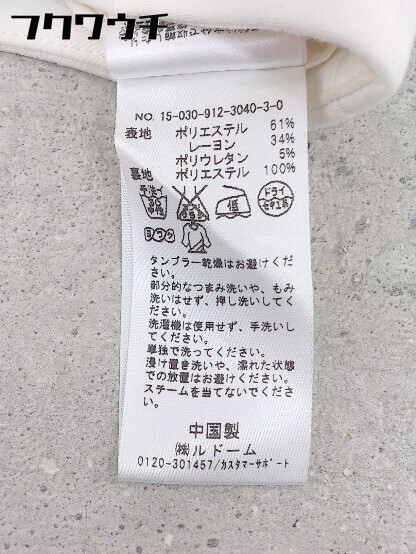 フクワウチ
NO. 15-030-912-3040-3-0
表地 ポリエステル 61%
レーヨン 34%
ポリウレタン 5%
裏地 ポリエステル 100%
手洗イ
中性
低
ドライ
セキユ系
ヨワク
タンブラー乾燥はお避けくだ
さい。
部分的なつまみ洗いや、もみ
洗いはせず、押し洗いしてく
ださい。
洗濯機は使用せず、手洗いし
てください。
単独で洗ってください。
浸け置き洗いや、濡れた状態
での放置はお避けください。
スチームを当てないでくださ
い。
中国製
㈱ルドーム
0120-301457/カスタマーサポート